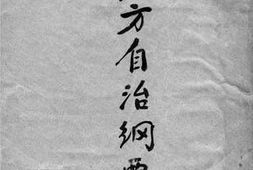 方自治纲要